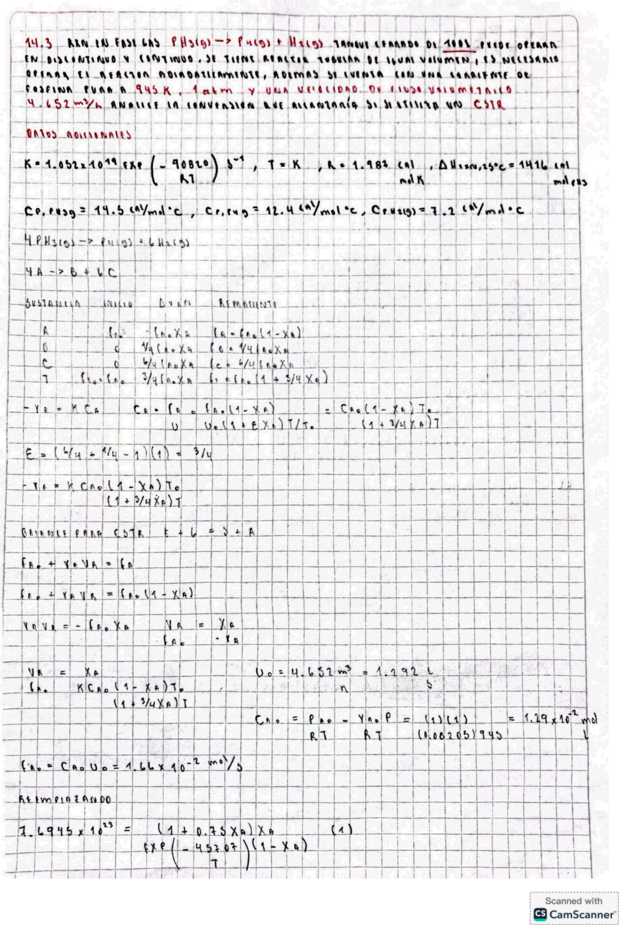 14.3 REN EN FASE GAS PH3(g) -> P4(g) + H2(g) TANQUE CERRADO DE 100L PUEDE OPERAR
EN DISCONTINUO Y CONTINUO, SE TIENE REACTOR TUBULAR DE IGUAL VOLUMEN, ES NECESARIO
OPERAR EL REACTOR ADIABATICAMENTE, ADEMAS SE CUENTA CON UNA CORRIENTE DE
FOSFINA PURA A 945 K, 1 atm Y UNA VELOCIDAD DE FLUJO VOLUMETRICO
4.652 m³/h ANALICE LA CONVERSION QUE ALCANZARÍA SI SE UTILIZA UN CSTR
DATOS ADICIONALES
K = 1.052x10^19 EXP (- 90820 / RT) s^-1 , T = K , R = 1.987 cal / mol K , ΔHrxn,25°C = 1416 cal / mol PH3
CP,PH3g = 14.5 cal/mol°C , CP,P4g = 12.4 cal/mol°C , CPH2(g) = 7.2 cal/mol°C
4PH3(g) -> P4(g) + 6H2(g)
4A -> B + 6C
SUSTANCIA INICIO REMANENTE
A FA0 -FA0 XA FA = FA0(1-XA)
B 0 1/4 FA0 XA FB = 1/4 FA0 XA
C 0 6/4 FA0 XA FC = 6/4 FA0 XA
T FT0 = FA0 3/4 FA0 XA FT = FA0(1 + 3/4 XA)
-rA = K CA CA = FA / U = FA0(1-XA) / U0(1+EXA)T/T0 = CA0(1-XA)T0 / (1+3/4XA)T
E = (6/4 + 1/4 - 1)(1) = 3/4
-rA = K CA0(1-XA)T0 / (1+3/4XA)T
BALANCE PARA CSTR E + G = S + A
FA0 + rA VR = FA
FA0 + rA VR = FA0(1-XA)
rA VR = -FA0 XA VR / FA0 = XA / -rA
VR / FA0 = XA / K CA0(1-XA)T0 / (1+3/4XA)T U0 = 4.652 m³/h = 1.292 L/s
CA0 = PA0 / RT = YA0 P / RT = (1)(1) / (0.08205)945 = 1.29x10^-2 mol / L
FA0 = CA0 U0 = 1.66x10^-2 mol/s
REEMPLAZANDO
7.6945x10^23 = (1+0.75XA)XA / EXP(-45707 / T)(1-XA) (1)
Scanned with
CS CamScanner